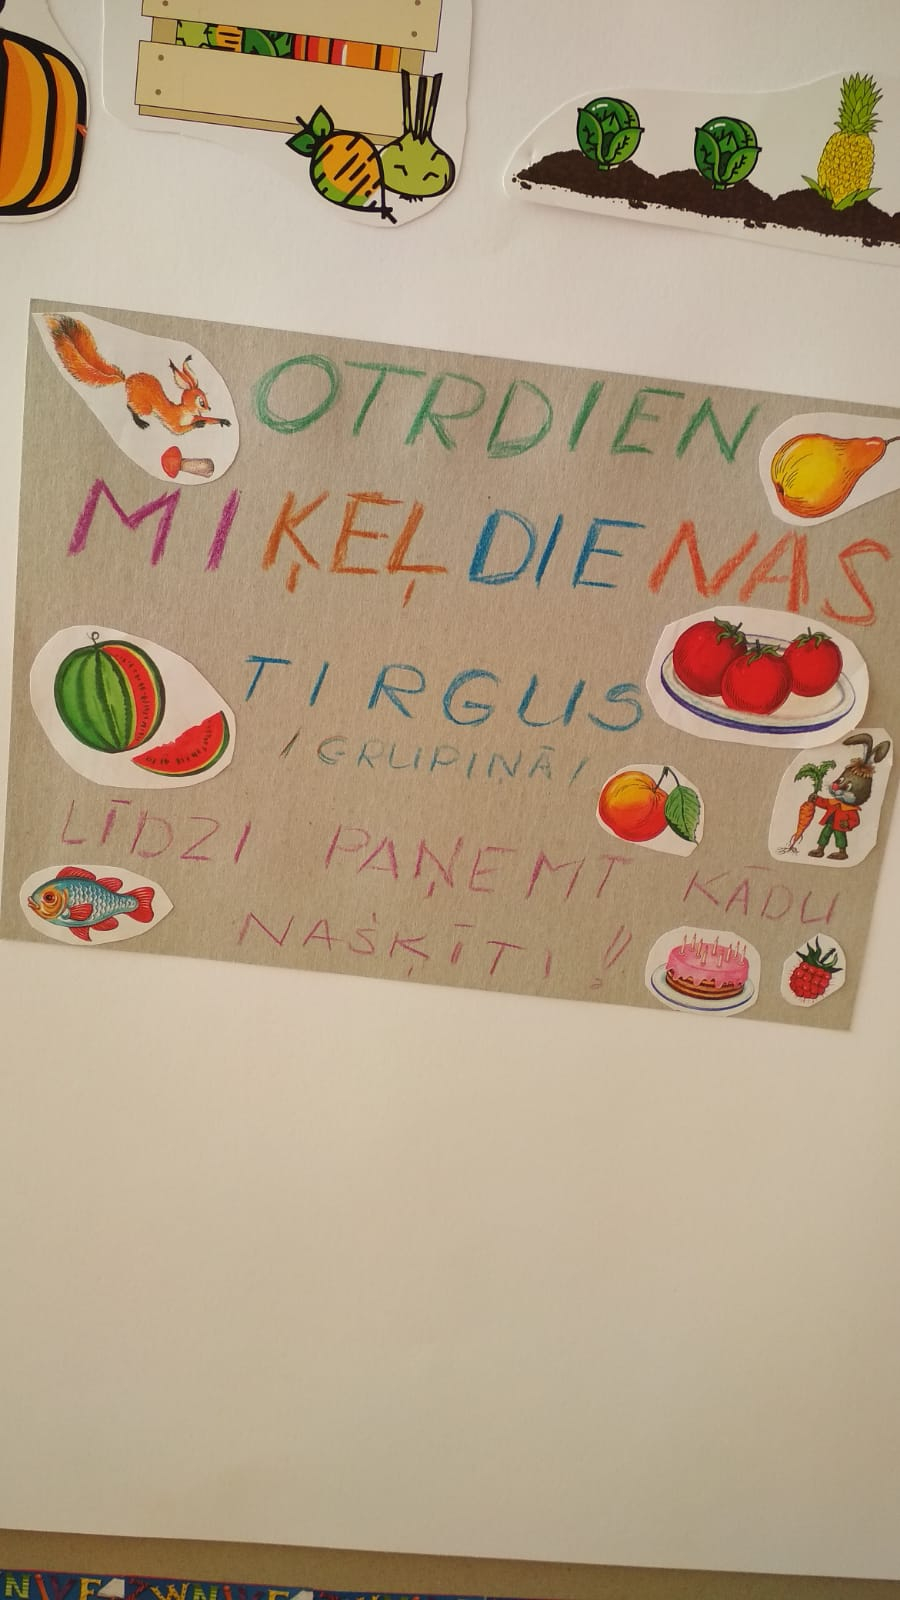 OTRDIEN
MIĶEĻDIENAS
TIRGUS
/GRUPIŅĀ/
LĪDZI PAŅEMT KĀDU
NAŠĶĪTI !!